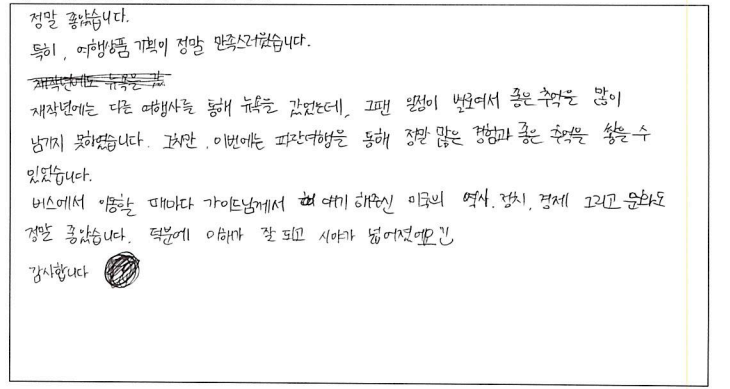 정말 좋았습니다.
특히, 여행상품 기획이 정말 만족스러웠습니다.
재작년에도 뉴욕을 갔
재작년에는 다른 여행사를 통해 뉴욕을 갔었는데, 그땐 일정이 별로여서 좋은 추억을 많이
남기지 못하였습니다. 그치만, 이번에는 파란여행을 통해 정말 많은 경험과 좋은 추억을 쌓을 수
있었습니다.
버스에서 이동할 때마다 가이드님께서 얘기 해주신 미국의 역사, 정치, 경제 그리고 문화도
정말 좋았습니다. 덕분에 이해가 잘 되고 시야가 넓어졌에요
감사합니다